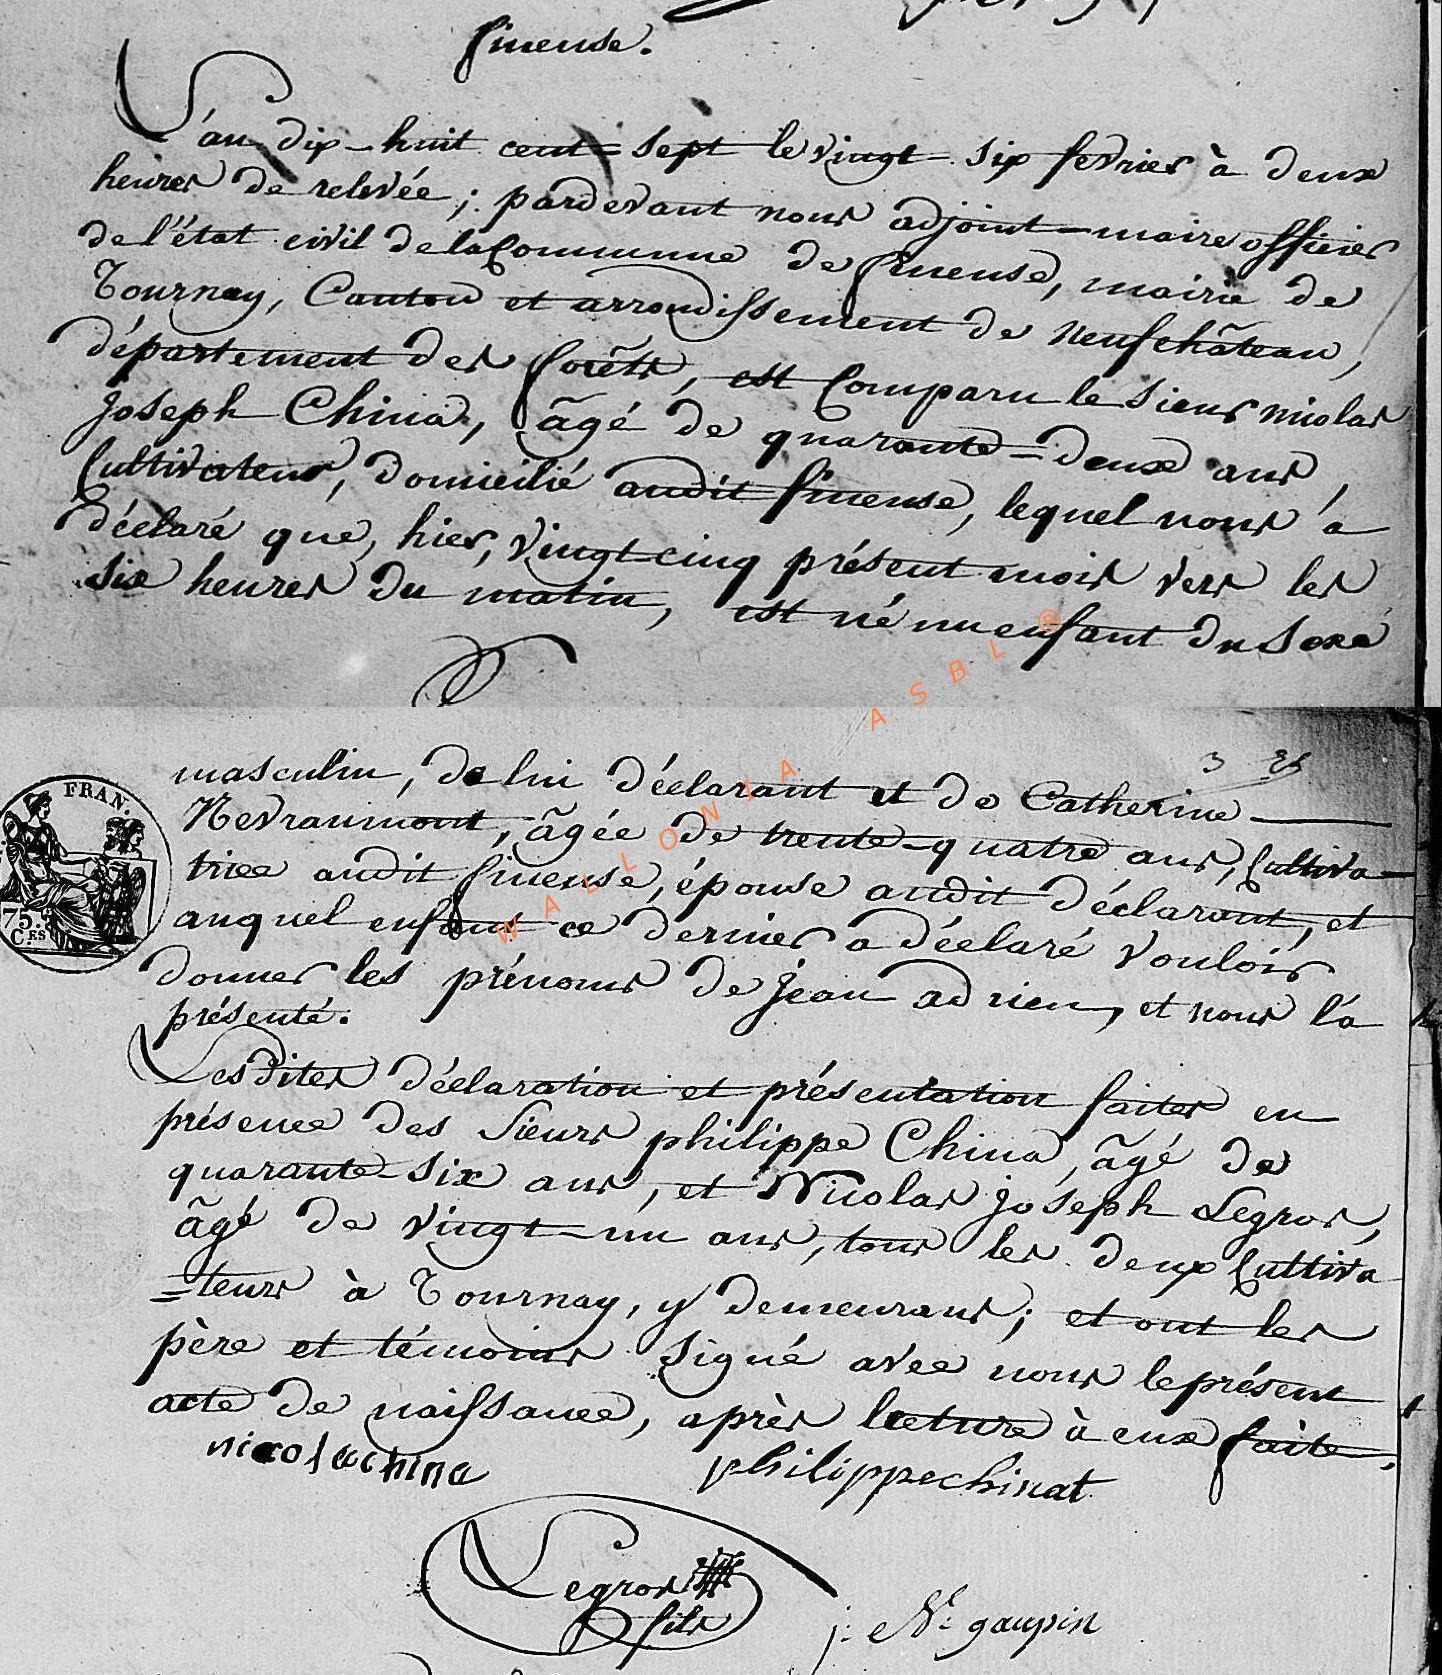 fineuse.
L'an dix-huit cent-sept le vingt-six fevrier à deux
heures de relevée; pardevant nous adjoint-maire officier
de l'état civil de la Commune de fineuse, mairie de
Tournay, Canton et arrondissement de Neufchâteau,
département des forêts, est Comparu le sieur nicolas
joseph China, âgé de quarante-deux ans,
Cultivateur, domicilié audit fineuse, lequel nous a
déclaré que, hier, vingt-cinq présent mois vers les
six heures du matin, est né un enfant du sexe
masculin, de lui déclarant et de Catherine
Nevraumont, âgée de trente-quatre ans, Cultiva-
trice audit fineuse, épouse audit déclarant, et
auquel enfant ce dernier a déclaré vouloir
donner les prénoms de jean adrien, et nous l'a
présenté.
Lesdites déclaration et présentation faites en
présence des Sieurs philippe China, âgé de
quarante-six ans, et Nicolas joseph Legros,
âgé de vingt-un ans, tous les deux Cultiva
=teurs à Tournay, y demeurans; et ont les
père et témoins signé avec nous le présent
acte de naissance, après lecture à eux faite.
nicolachina philippechinat
Legros
fils
j: N. gaupin
FRAN.
75.
CES
WALLONIA ASBL ®